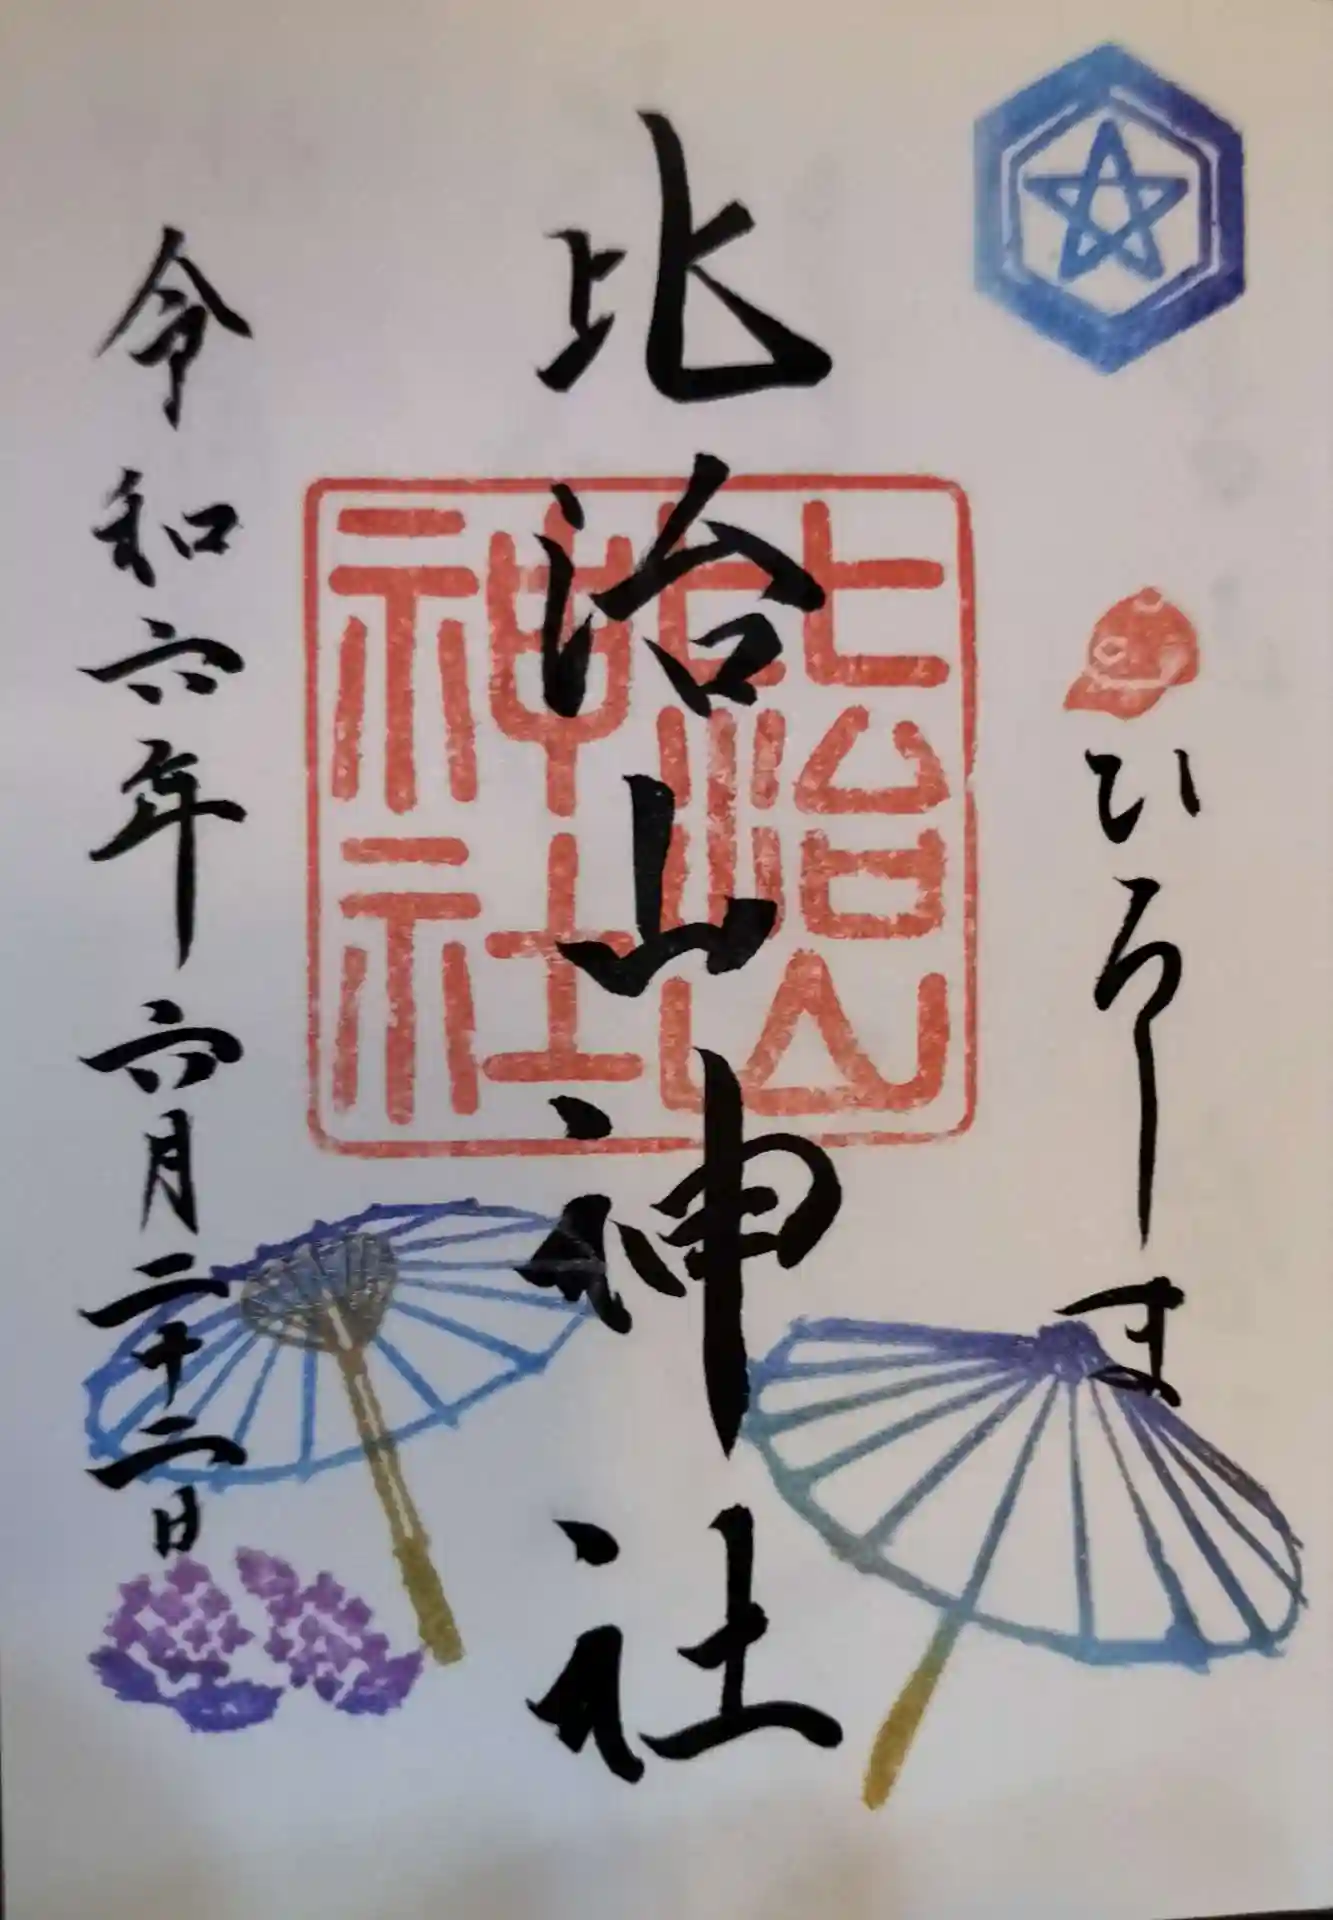 ひろしま
比治山神社
比治山神社
令和六年六月二十二日